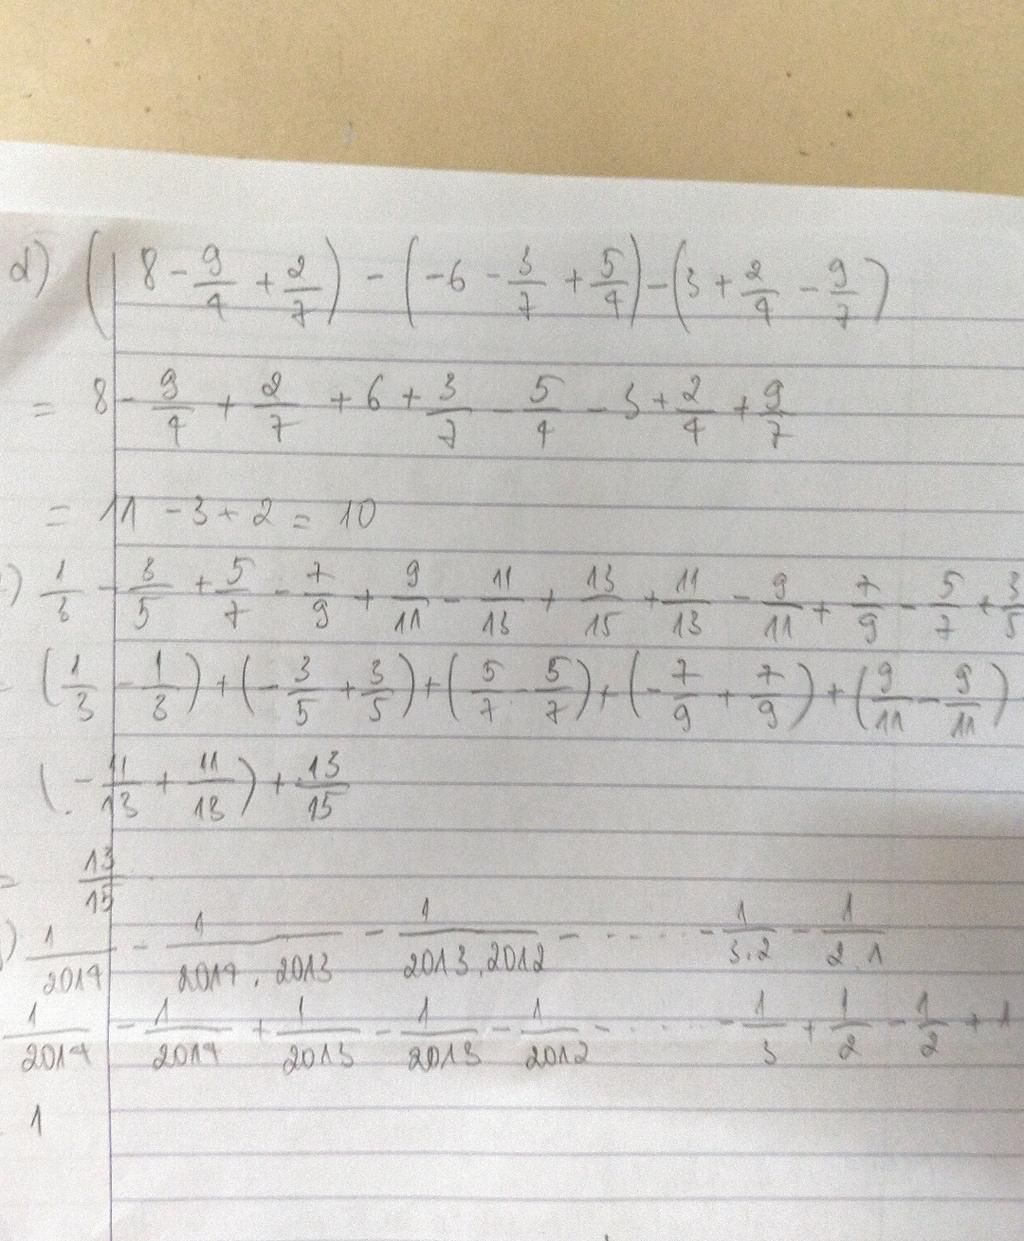 d) (8 - 9/4 + 2/7) - (-6 - 3/7 + 5/4) - (3 + 2/4 - 9/7)
= 8 - 9/4 + 2/7 + 6 + 3/7 - 5/4 - 3 + 2/4 + 9/7
= 11 - 3 + 2 = 10
) 1/3 - 3/5 + 5/7 - 7/9 + 9/11 - 11/13 + 13/15 + 11/13 - 9/11 + 7/9 - 5/7 + 3/5
(1/3 - 1/3) + (-3/5 + 3/5) + (5/7 - 5/7) + (-7/9 + 7/9) + (9/11 - 9/11)
(-11/13 + 11/13) + 13/15
= 13/15
) 1/2014 - 1/2014.2013 - 1/2013.2012 - ..... - 1/3.2 - 1/2.1
1/2014 - 1/2014 + 1/2013 - 1/2013 - 1/2012 - ..... - 1/3 + 1/2 - 1/2 + 1
1